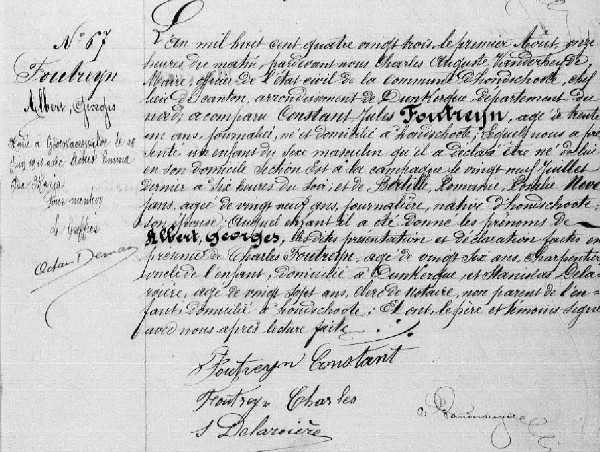 N° 67
Foutreyn
Albert, Georges
Marié à
le
Pour mention
Le Greffier
L'an mil huit cent quatre vingt trois, le premier Août, onze
heures du matin, pardevant nous Charles Auguste Vandenheede
Maire officier de l'état civil de la commune d'hondschoote, chef
lieu de canton, arrondissement de Dunkerque département du
nord, a comparu Constant Jules Foutreyn, agé de trente
un ans, journalier, né et domicilié à hondschoote, lequel nous a pré
senté un enfant du sexe masculin qu'il a déclaré être né de lui
en son domicile section Est à la campagne le vingt neuf Juillet
dernier à six heures du soir; et de Bertille, Romanie, Emélie
agée de vingt neuf ans, journalière, native d'hondschoote
son épouse; auquel enfant il a été donné les prénoms de
Albert, Georges, les dites présentation et déclaration faites en
présence de Charles Foutreyn, agé de vingt six ans, charpentier
oncle de l'enfant, domicilié à Dunkerque et Stanislas Dela
roière, agé de vingt sept ans, clerc de notaire, non parent de l'en
fant, domicilié à hondschoote; Et ont, le père et témoins signé
avec nous après lecture faite
Foutreyn Constant
Foutreyn Charles
S Delaroière